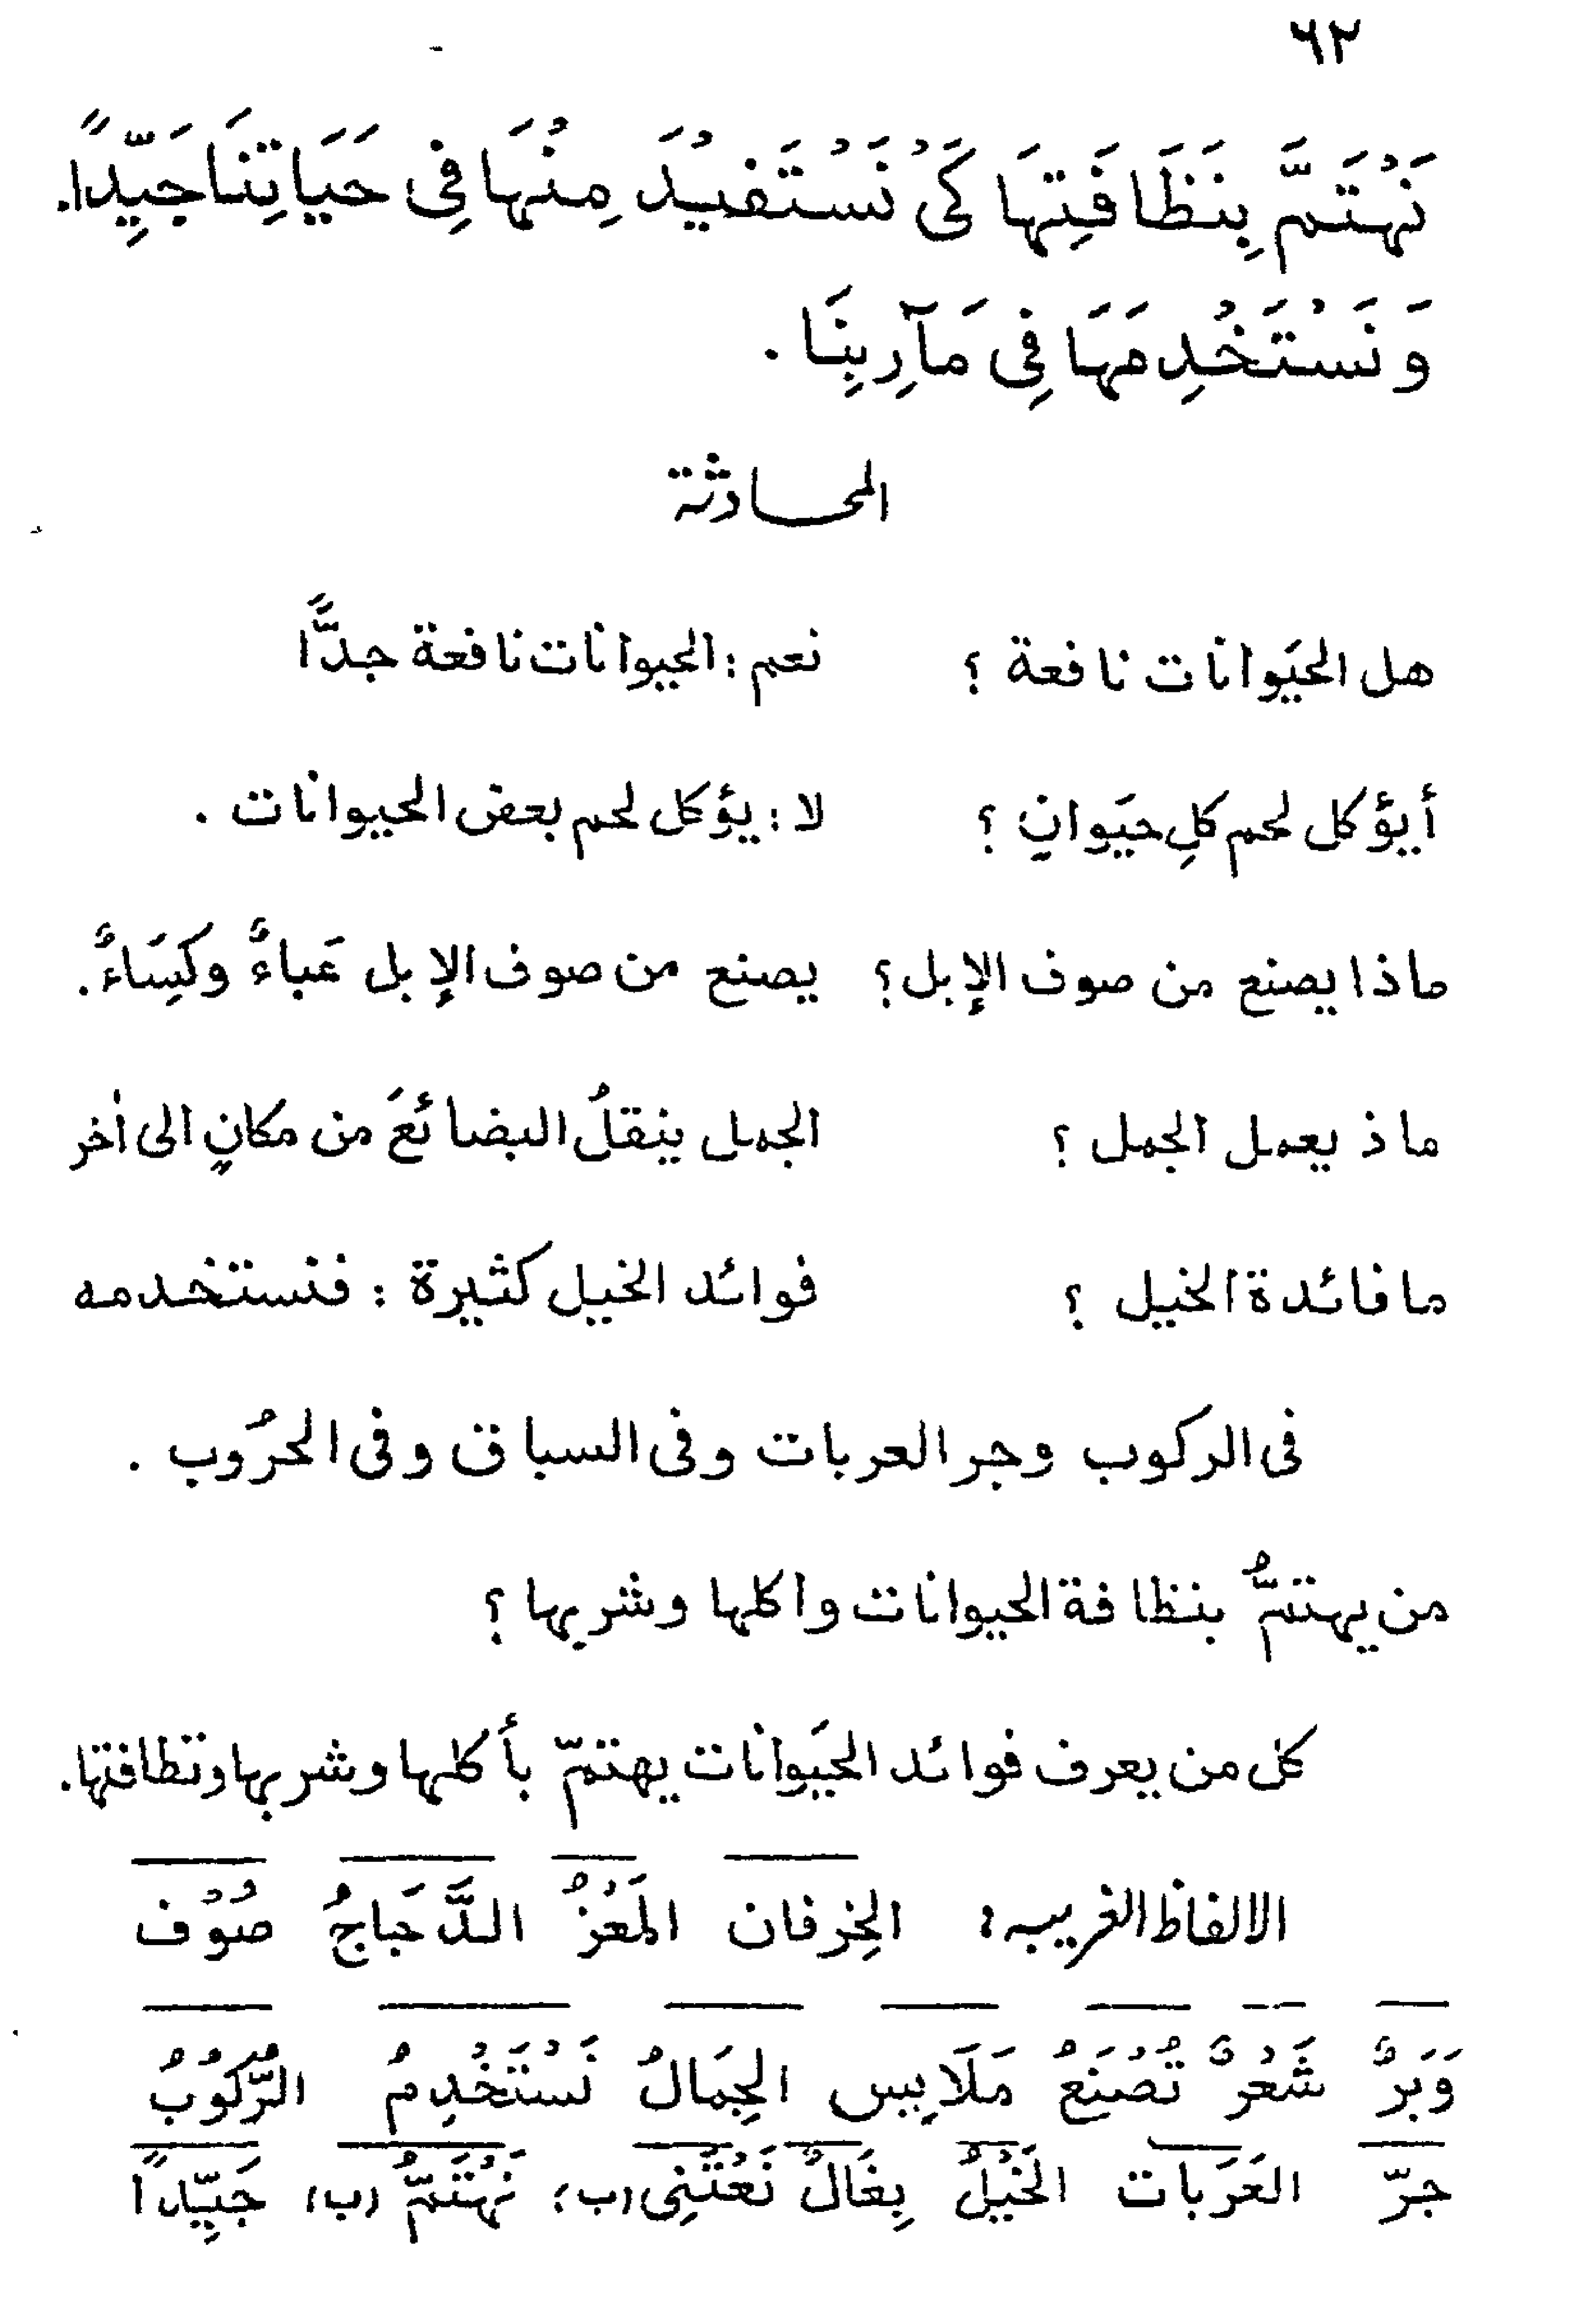 ٦٢
نَهْتَمَّ بِنَظَافَتِهَا كَىْ نَسْتَفِيْدَ مِنْهَا فِى حَيَاتِنَا جَيِّدًا.
وَ نَسْتَخْدِمَهَا فِى مَآرِبِنَا .
المحادثة
هل الحيَوانات نافعة ؟ نعم : الحيوانات نافعة جدًّا
أيؤكل لحم كلِ حيَوانٍ ؟ لا : يؤكل لحم بعض الحيوانات .
ماذا يصنع من صوف الإبل ؟ يصنع من صوف الإبل عَباءٌ وكِسَاءٌ .
ماذ يعمل الجمل ؟ الجمل ينقلُ البضائعَ من مكانٍ الى اٰخر
ما فائدة الخيل ؟ فوائد الخيل كثيرة : فنستخدمه
فى الركوب وجر العربات وفى السباق وفى الحرُوب .
من يهتمُّ بنظافة الحيوانات واكلها وشربها ؟
كل من يعرف فوائد الحيَوانات يهتمّ بأكلها وشربها ونظافتها .
الالفاظ الغريبه : الخِرفان المَعْزُ الدَّجَاجُ صُوْف
وَبَرٌ شَعْرٌ تُصْنَعُ مَلَابِيس الجِمَالُ نَسْتَخْدِمُ الرُّكُوْبُ
جرّ العَرَبات الخَيْلُ بِغَالٌ نَعْتَنِى (ب) ؛ نَهْتَمُّ (ب) ؛ جَيِّدًا